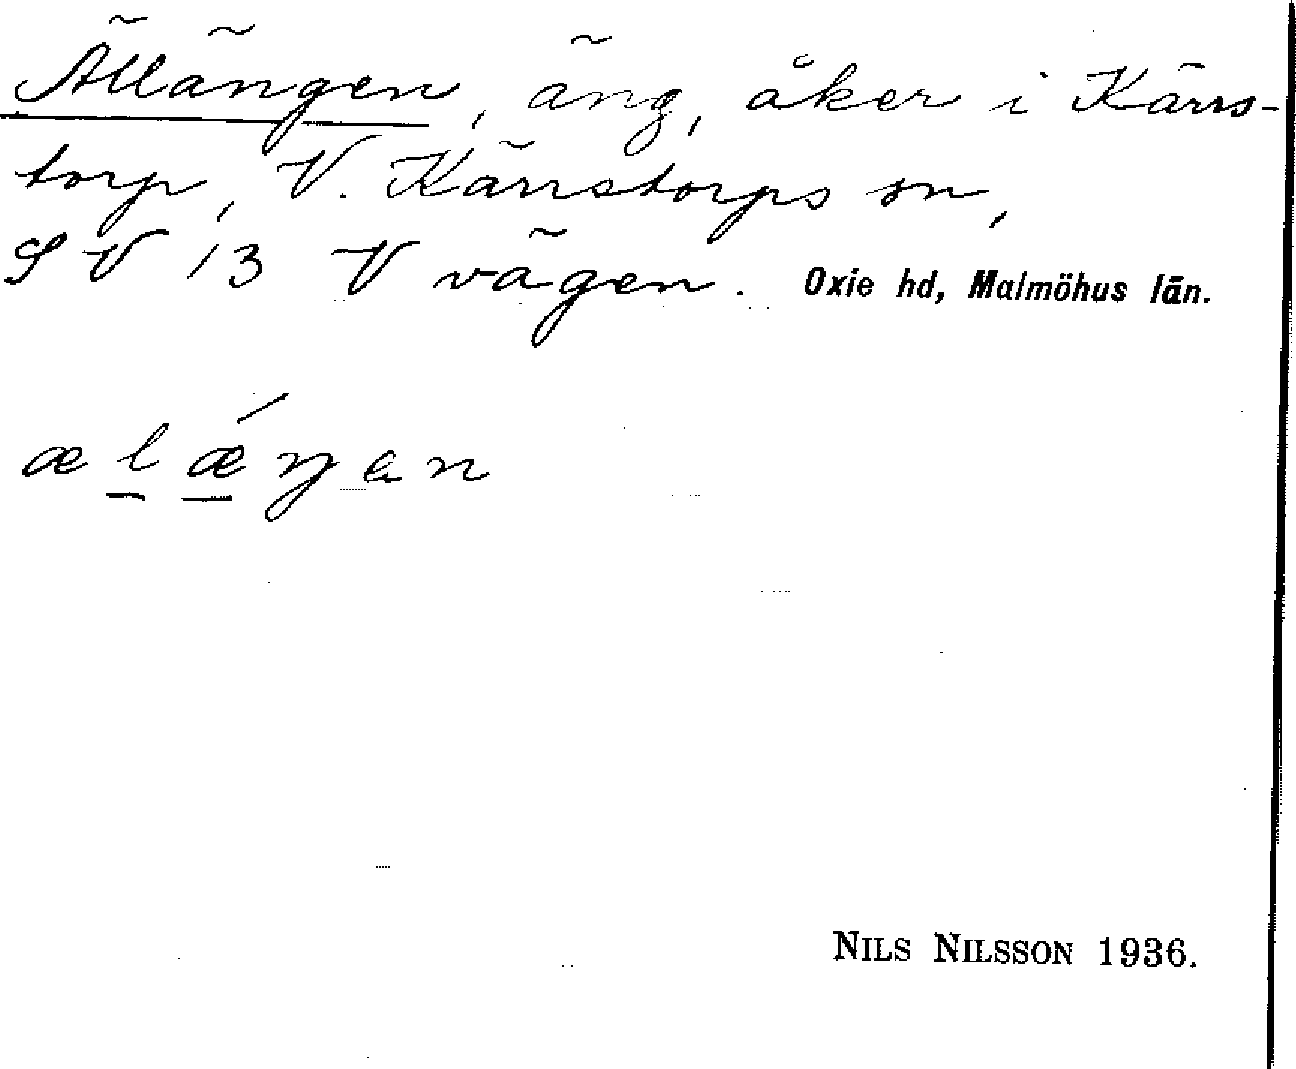 Ällängen, äng, åker i Kärrs-
torp, V. Kärrstorps sn,
SV 13 V vägen. Oxie hd, Malmöhus län.
ælǽŋɐn
NILS NILSSON 1936.